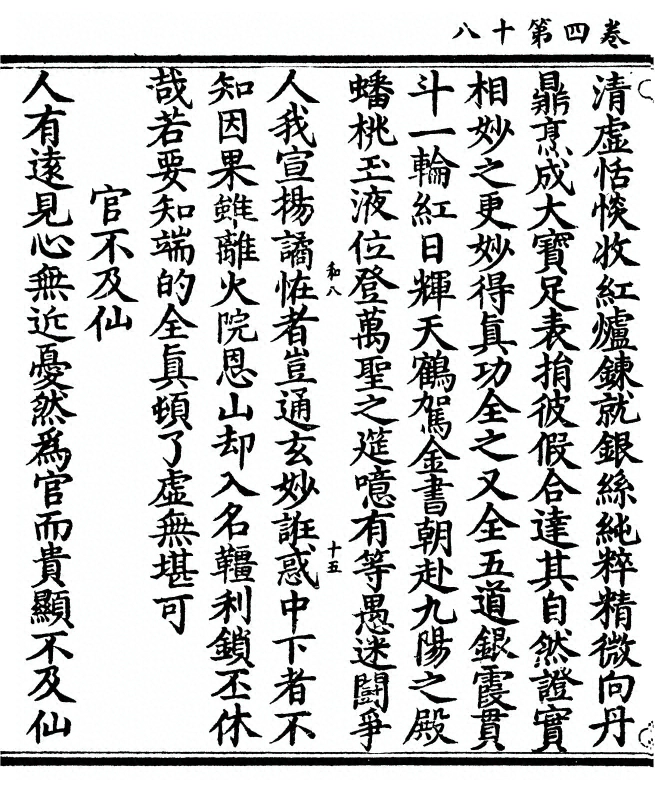 卷四第十八
清虛恬惔收紅爐鍊就銀絲純粹精微向丹
鼎烹成大寶足表捎彼假合達其自然證實
相妙之更妙得眞功全之又全五道銀霞貫
斗一輪紅日輝天鶴駕金書朝赴九陽之殿
蟠桃玉液位登萬聖之筵噫有等愚迷鬪爭
和八
十五
人我宣揚譎怪者豈通玄妙誑惑中下者不
知因果雖離火院恩山却入名韁利鎖丕休
哉若要知端的全眞頓了虛無堪可
官不及仙
人有遠見心無近憂然爲官而貴顯不及仙